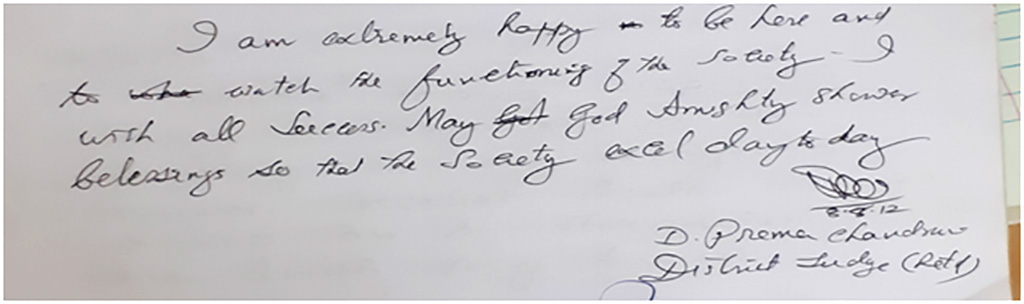 I am extremely happy to be here and
to watch the functioning of the Society - I
wish all Success. May God Amighty shower
belessings so that the Society excel day to day
8-8-12
D. Prema
District Judge (Retd)